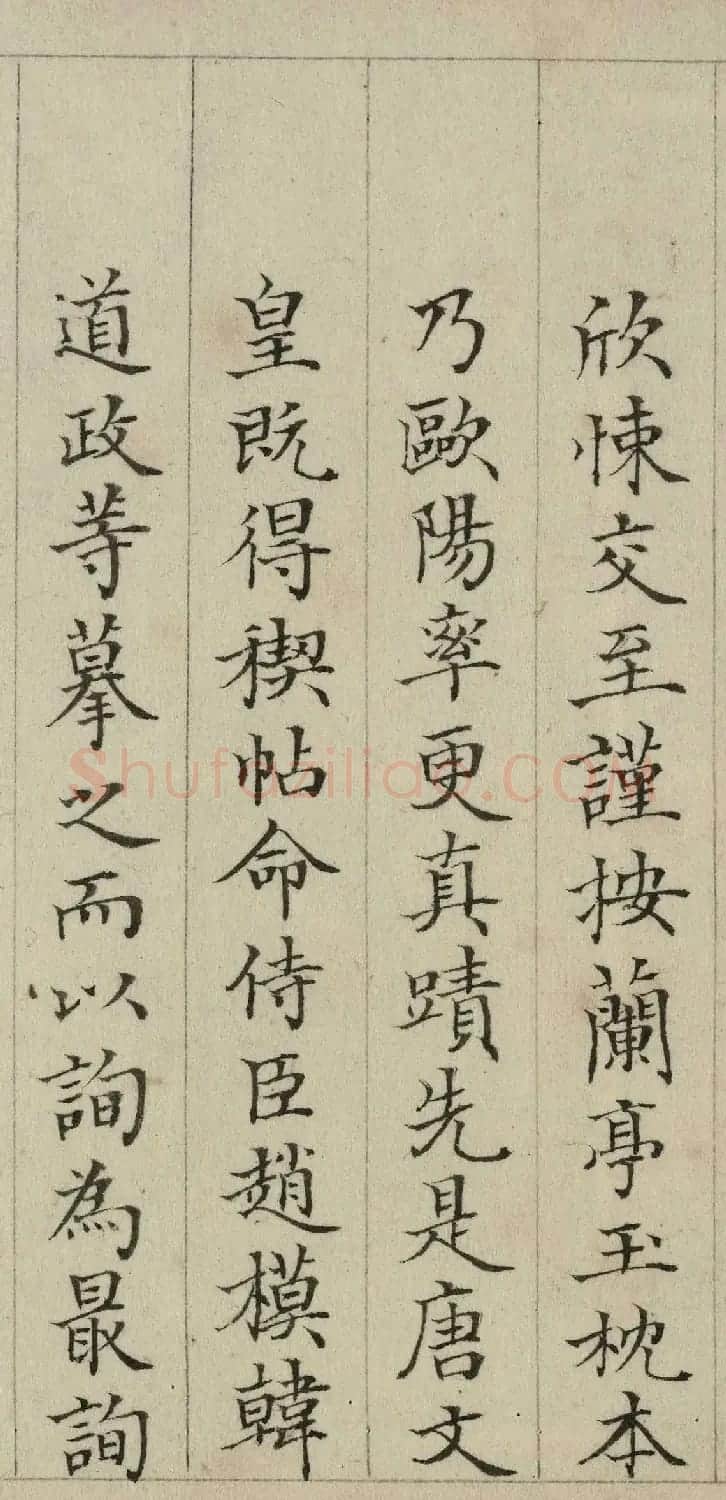 欣悚交至謹按蘭亭玉枕本
乃歐陽率更真蹟先是唐文
皇既得稧帖命侍臣趙模韓
道政等摹之而以詢為最詢
shufaziliao.com